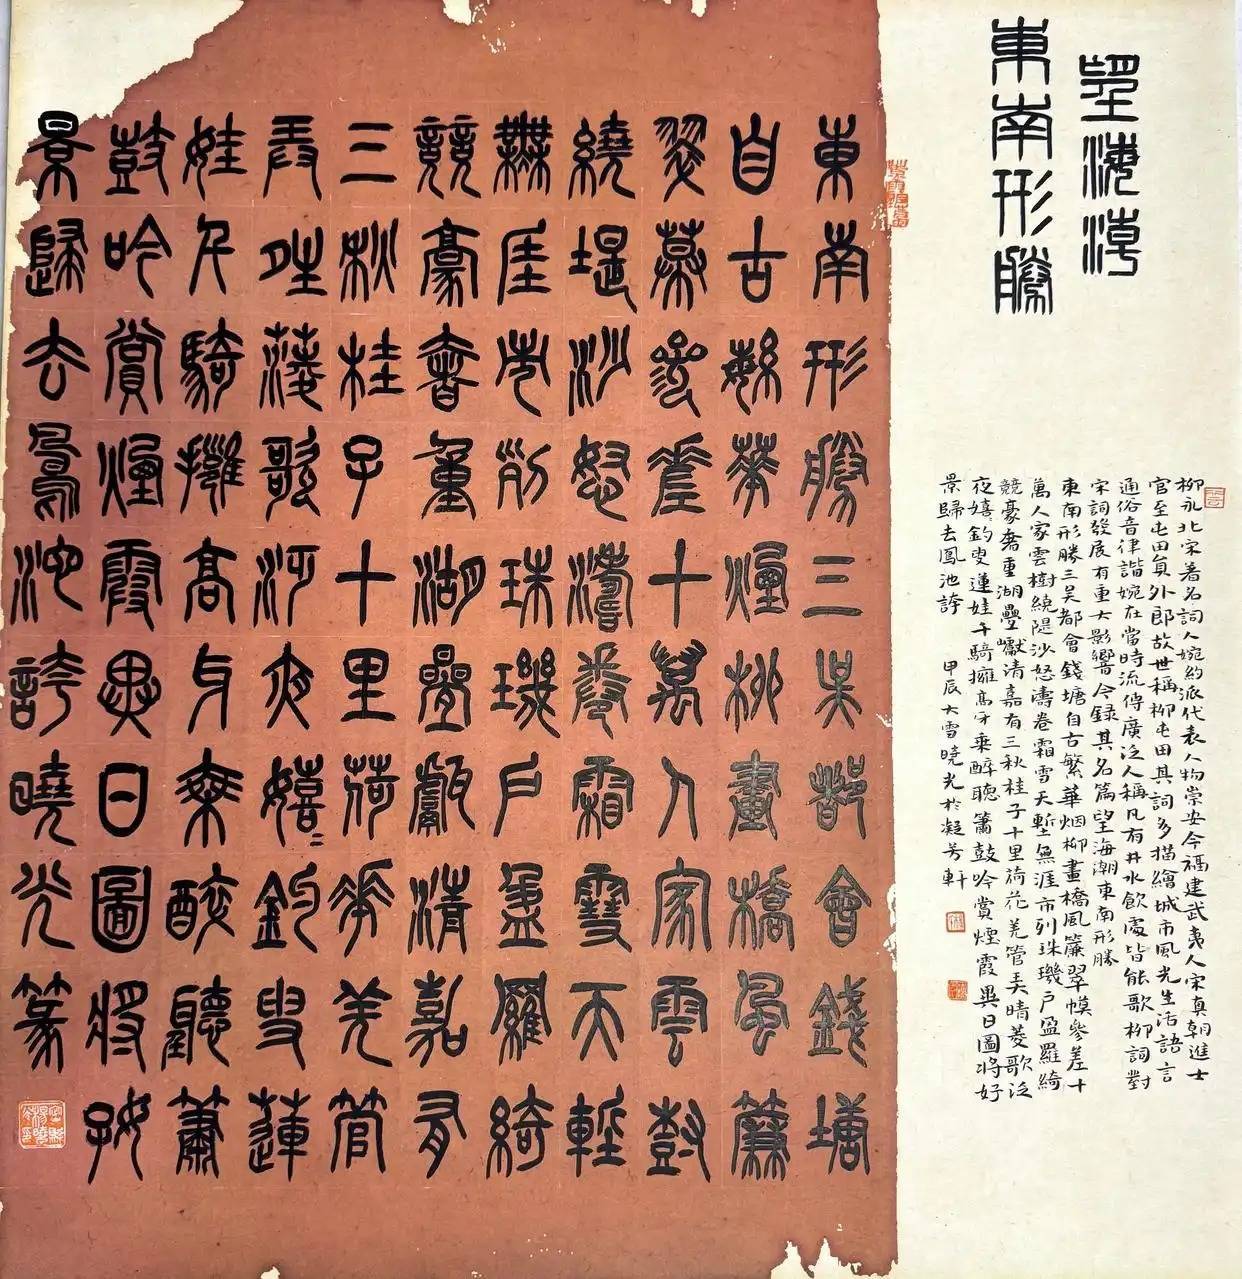 望海潮
東南形勝
柳永北宋著名詞人婉約派代表人物崇安今福建武夷人宋真朝進士
官至屯田員外郎故世稱柳屯田其詞多描繪城市風光生活語言
通俗音律諧婉在當時流傳廣泛人稱凡有井水飲處皆能歌柳詞對
宋詞發展有重大影響今録其名篇望海潮東南形勝
東南形勝三吴都會錢塘自古繁華烟柳畫橋風簾翠幙參差十
萬人家雲樹繞隄沙怒濤卷霜雪天塹無涯市列珠璣户盈羅綺
競豪奢重湖疊巘清嘉有三秋桂子十里荷花羌管弄晴菱歌泛
夜嬉〻釣叟蓮娃千騎擁高牙乘醉聽簫鼓吟賞煙霞異日圖將好
景歸去鳳池誇 甲辰大雪曉光於凝芳軒
東南形勝三吳都會錢塘
自古緐華煙柳畫橋風簾
翠幕參差十萬人家雲樹
繞堤沙怒濤卷霜雪天塹
無涯市列珠璣戶盈羅綺
競豪奢重湖疊巘清嘉有
三秋桂子十里荷花羌管
弄晴菱歌泛夜嬉〻釣叟蓮
娃千騎擁高牙乘醉聽簫
鼓吟賞煙霞異日圖將好
景歸去鳳池誇曉光篆